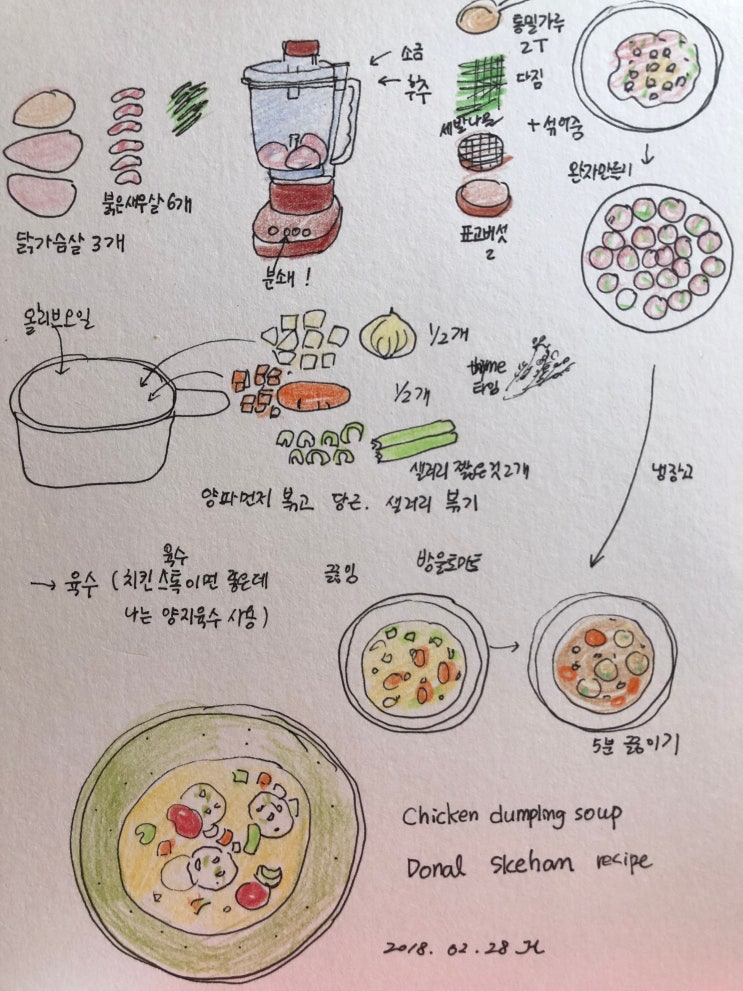 소금
후추
통밀가루
2T
다짐
세발나물
+ 섞어줌
완자만들기
붉은새우살 6개
닭가슴살 3개
분쇄!
표고버섯
2
올리브오일
1/2개
thyme
타임
1/2개
샐러리 짧은것 2개
냉장고
양파먼저 볶고 당근. 샐러리 볶기
육수
→ 육수 (치킨스톡이면 좋은데
나는 양지육수 사용)
끓임
방울토마토
5분 끓이기
Chicken dumpling soup
Donal Skehan recipe
2018. 02. 28 JH